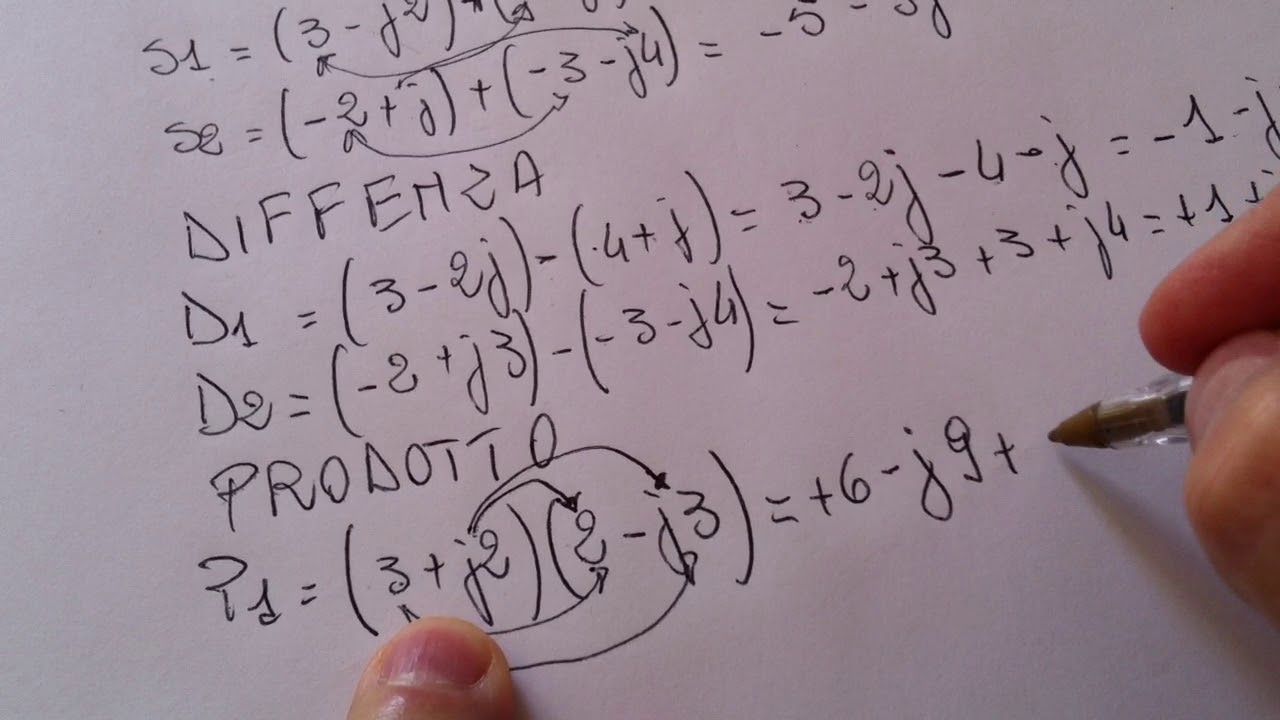 S1 = (3 - j2) + (
S2 = (-2 + j) + (-3 - j4) = -5 - 3j
DIFFENZA
D1 = (3 - 2j) - (4 + j) = 3 - 2j - 4 - j = -1 - j
D2 = (-2 + j3) - (-3 - j4) = -2 + j3 + 3 + j4 = +1 +
PRODOTTO
P1 = (3 + j2)(2 - j3) = +6 - j9 +